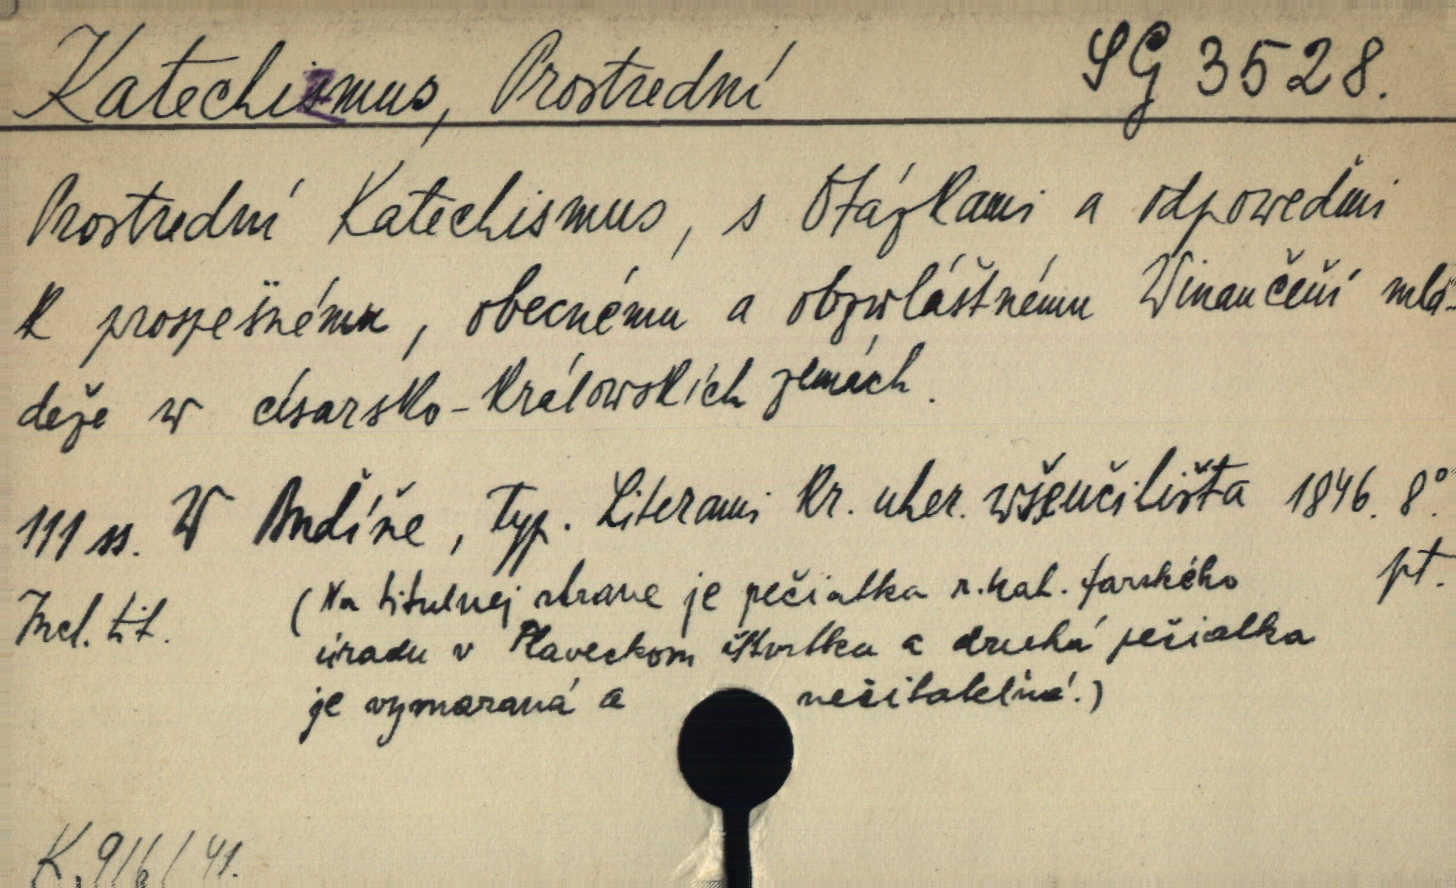 Katechismus, Prostrední SG 3528.
Prostrední Katechismus, s Otázkami a odpoweďmi
k prospešnému, obecnému a obzwláštnému Winaučeňí mlá-
deže w císarsko-králowskích zemách.
111 ss. W Buďíňe, Typ. Literami kr. uher. wšeučilišťa 1846. 8°.
Incl. tit. (Na titulnej strane je pečiatka r. kat. farského pt.
úradu v Plaveckom Štvrtku a druhá pečiatka
je vymazaná a nečitateľná.)
K, 9/6/41.